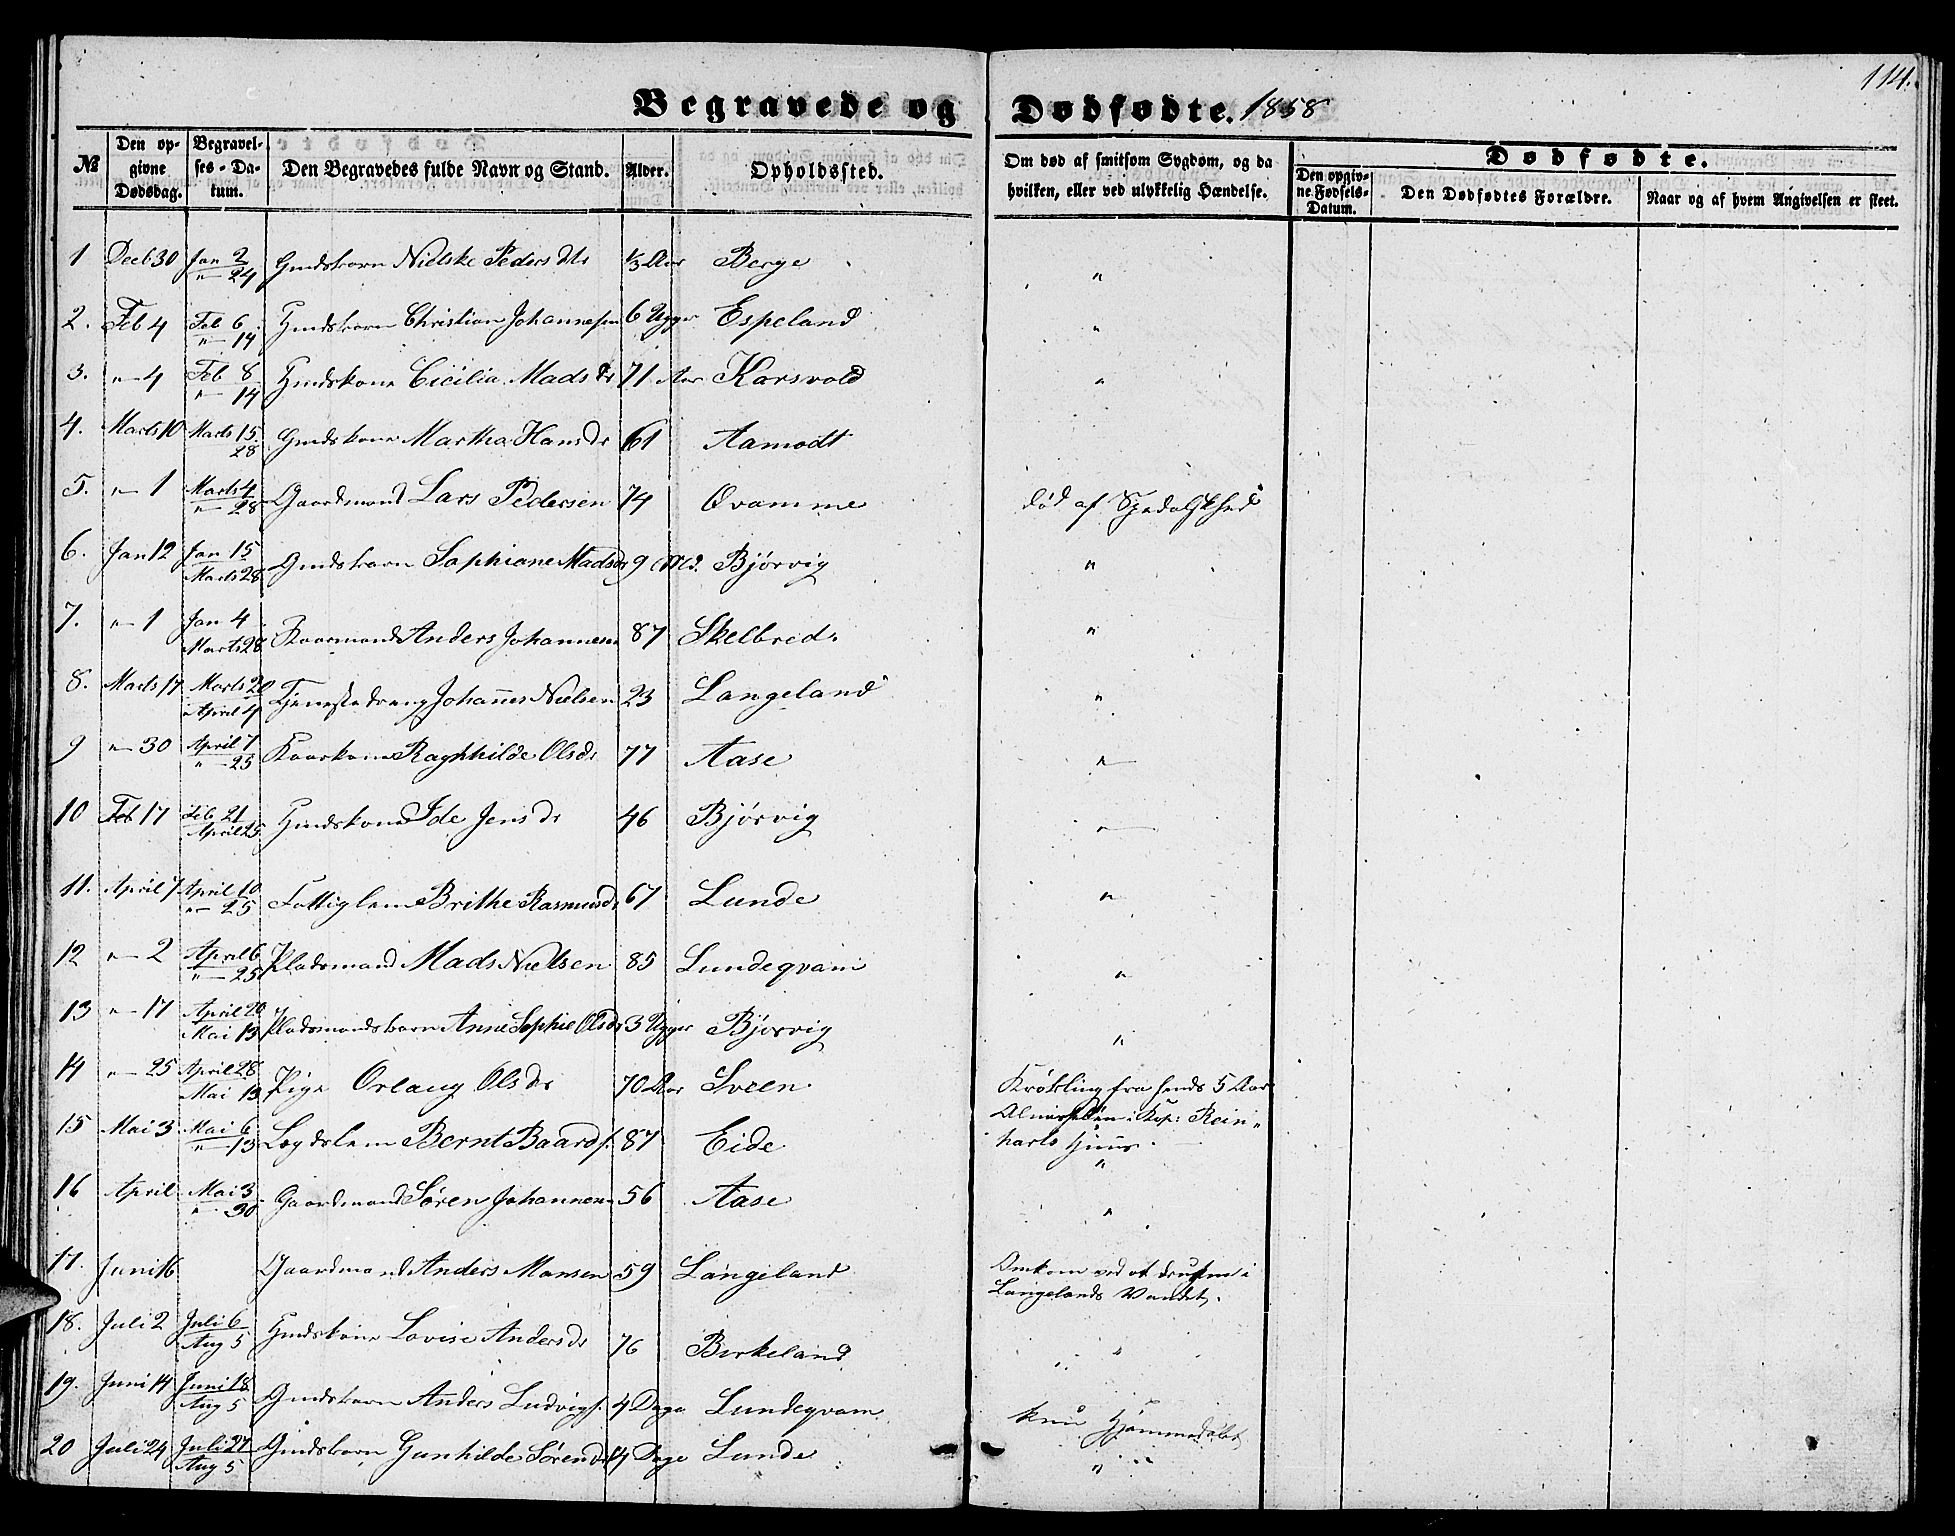 114.
Begravede og Dødfødte. 1858
№ | Den opgivne Dødsdag. | Begravelses-Datum. | Den Begravedes fulde Navn og Stand. | Alder. | Opholdssted. | Om død af smitsom Sygdom, og da hvilken, eller ved ulykkelig Hændelse. | Dødfødte. | Den opgivne Fødsels-Datum. | Den Dødfødtes Forældre. | Naar og af hvem Angivelsen er skeet.
1 | Decb 30 | Jan 2 " 24 | Gmdsbarn Nielske Peders Dtr | 1/3 Aar | Berge | "
2. | Feb 4 | Feb 6 " 14 | Gmdsbarn Christian Johannesen | 6 Uger | Espeland | "
3. | " 4 | Feb 8 " 14 | Gmdskone Cicilia Mads Dr | 71 Aar | Karsvold | "
4. | Marts 10 | Marts 15 28 | Gmdskone Martha Hans Dr | 61 | Aamodt
5. | " 1 | Marts 4 " 28 | Gaardmand Lars Pedersen | 74 | Qvamme | død af Spedalskhed
6. | Jan 12 | Jan 15 Marts 28 | Gmdsbarn Sophiane Madsdr | 9 Md. | Bjørvig | "
7. | " 1 | Jan 4 Marts 28 | Kaarmand Anders Johannesen | 87 | Skelbred. | "
8. | Marts 17 | Marts 20 April 4 | Tjenestedreng Johannes Nielsen | 23 | Langeland | "
9 | " 30 | April 7 " 25 | Kaarkone Raghhilde Olsdr | 77 | Aase | "
10 | Feb 17 | Feb 21 April 25 | Gmdskone Ide Jens Dr | 46 | Bjørvig | "
11. | April 7 | April 10 " 25 | Fattiglem Brithe Rasmusdr | 67 | Lunde | "
12 | " 2 | April 6 " 25 | Pladsmand Mads Nielsen | 85 | Lundeqvam | "
13 | " 17 | April 20 Mai 13 | Pladsmandsbarn Anne Sophie Olsdr | 3 Uger | Bjørvig | "
14 | " 25 | April 28 Mai 13 | Pige Orlaug Ols Dr | 70 Aar | Sveen | Krøbling fra hends 5 Aar
15 | Mai 3 | Mai 6 " 13 | Legdslem Bernt Baards. | 87 | Eide | "
16 | April | Mai 3 " 30 | Gaardmand Søren Johannesen | 56 | Aase | "
17. | Juni 16 | Gaardmand Anders Monsen | 59 | Langeland | Omkom ved at drukne i Langelands Vandet.
18. | Juli 2 | Juli 6 Aug 5 | Gmdskone Lovise Anders Dr | 76 | Birkeland | "
19. | Juni 14 | Juni 18 Aug 5 | Gmdsbarn Anders Ludvigs. | 4 Dage | Lundeqvam | kun Hjemmedøbt
20 | Juli 24 | Juli 27 Aug 5 | Gmdsbarn Gunhilde Sørendr | 14 Dage | Lunde | "